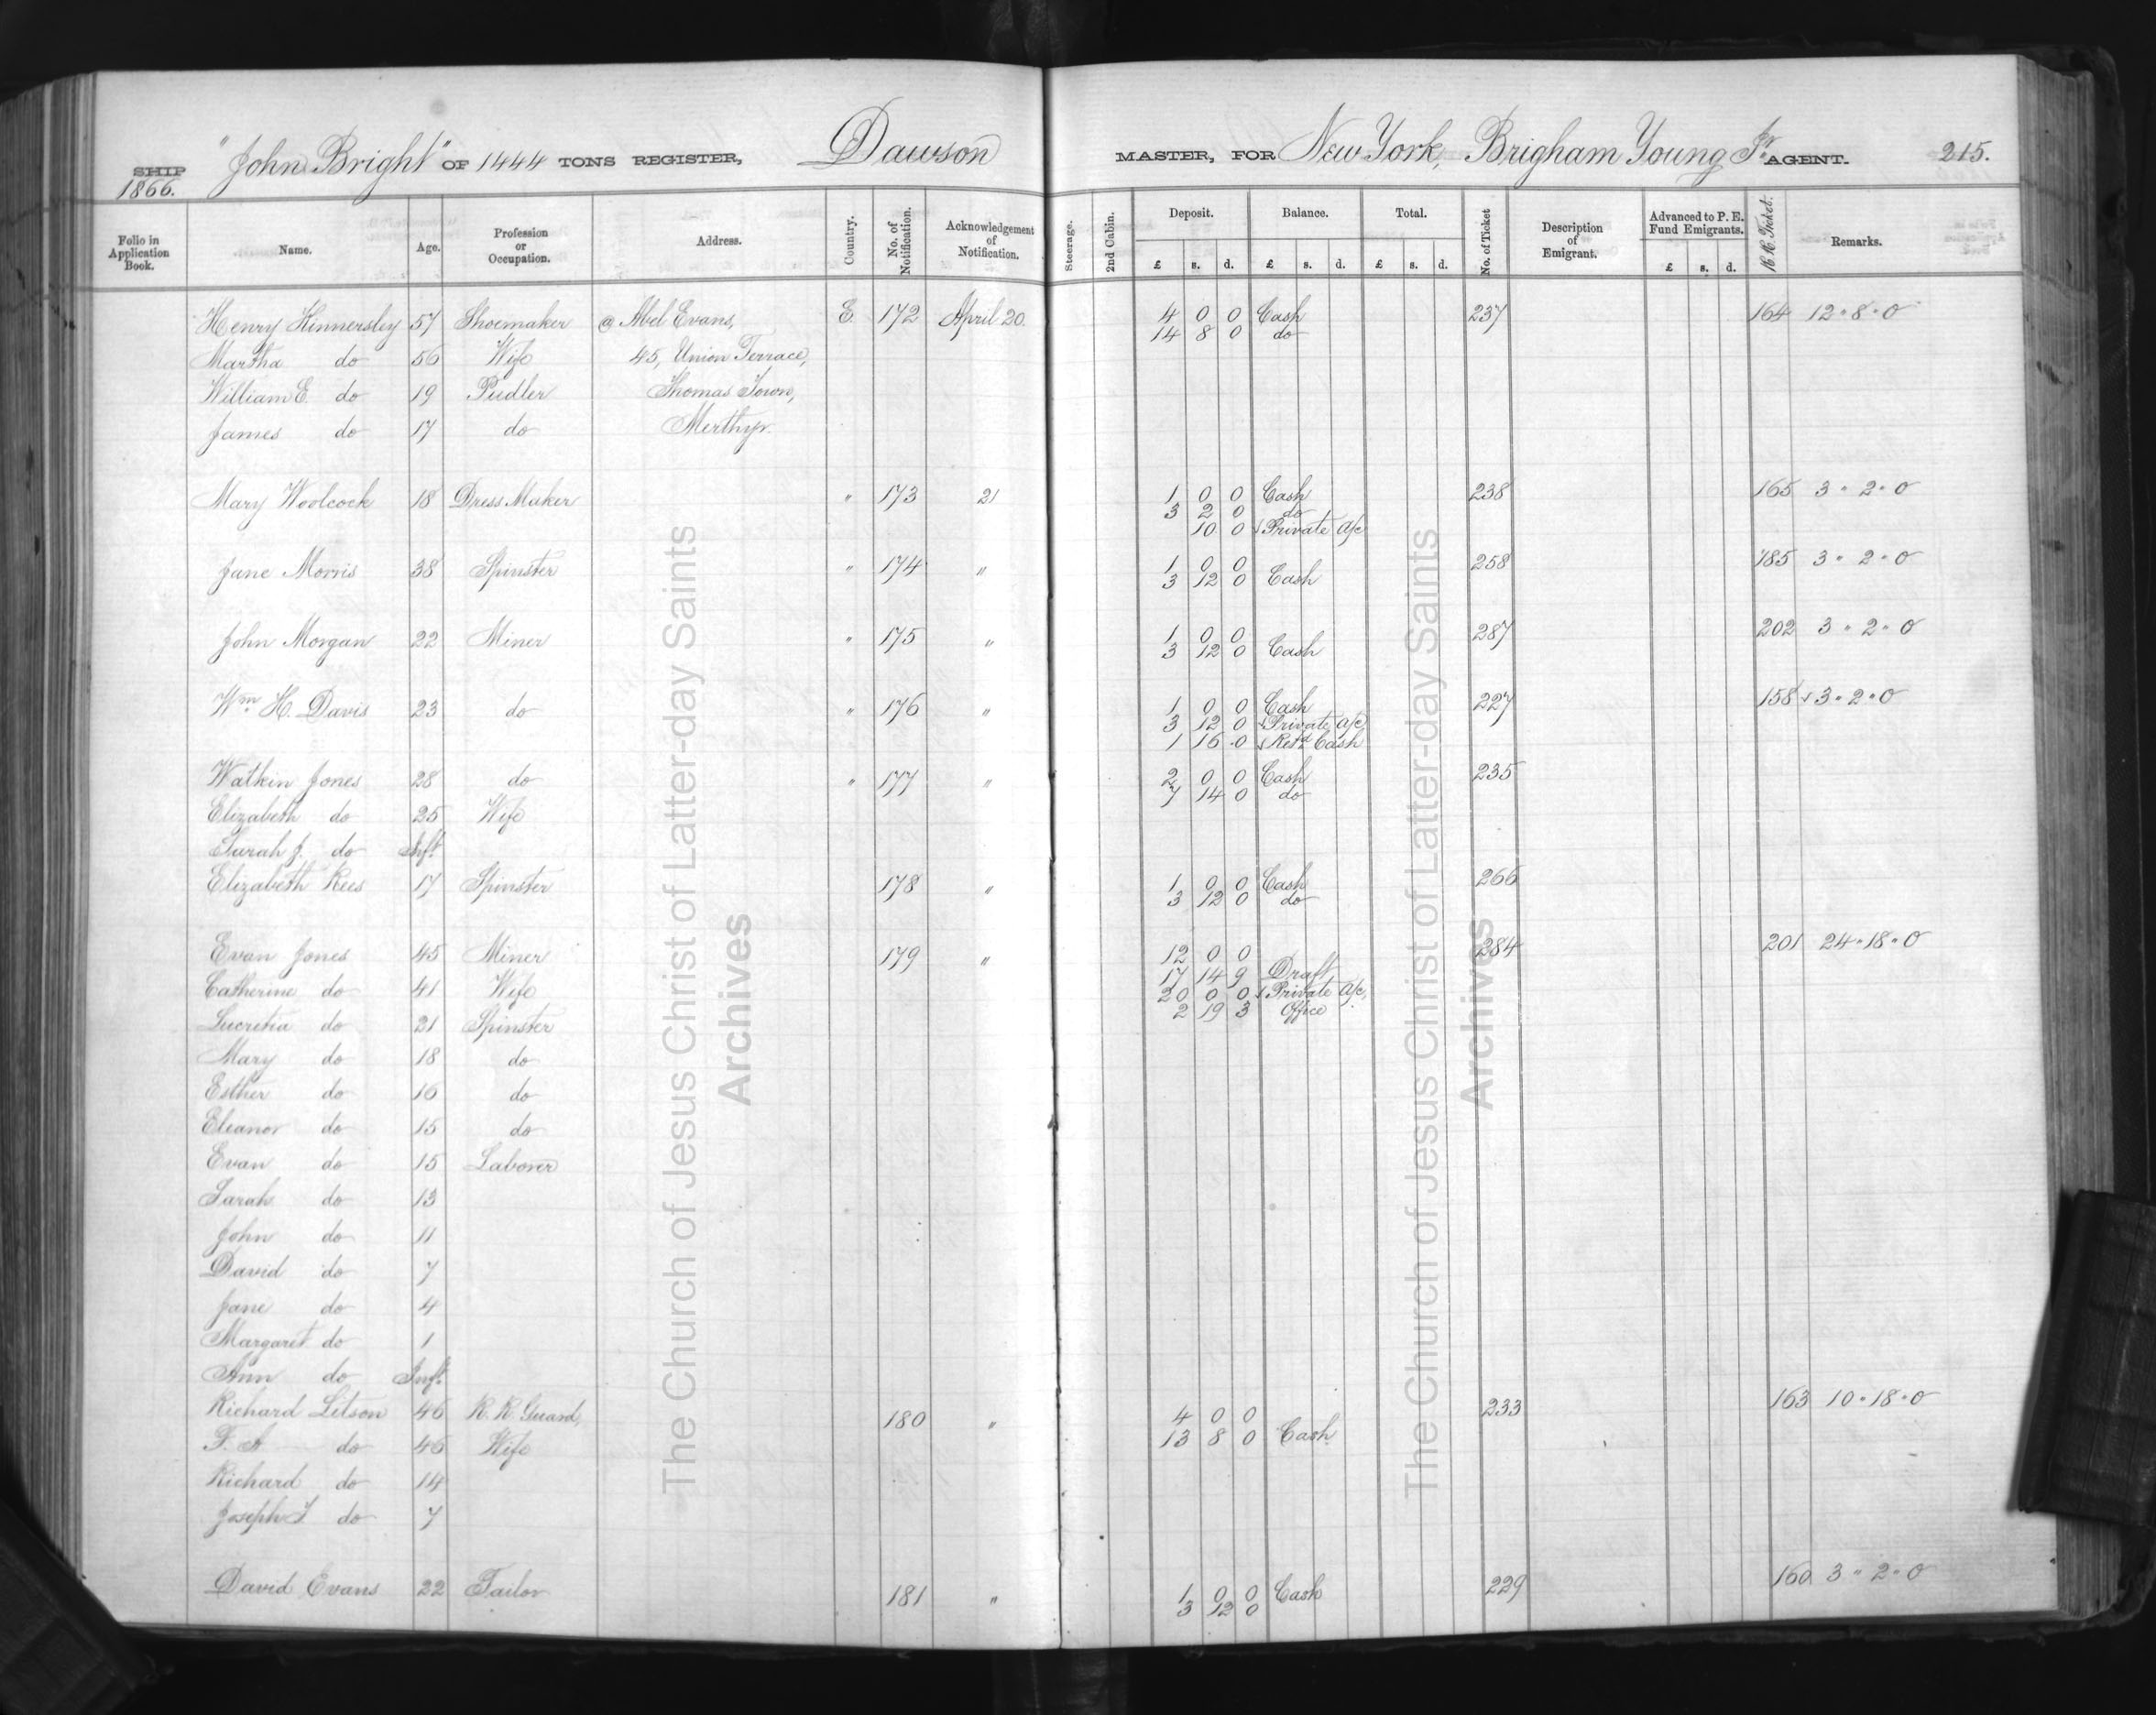 SHIP "John Bright" OF 1444 TONS REGISTER, Dawson MASTER, FOR New York, Brigham Young Jr. AGENT. 215.
1866.
Folio in Application Book. Name. Age. Profession or Occupation. Address. Country. No. of Notification. Acknowledgement of Notification. Steerage. 2nd Cabin. Deposit. Balance. Total. No. of Ticket Description of Emigrant. Advanced to P. E. Fund Emigrants. R R Ticket. Remarks.
£ s. d. £ s. d. £ s. d. £ s. d.
Henry Kinnersley 57 Shoemaker @ Abel Evans, E. 172 April 20. 4 0 0 Cash 237 164 12 " 8 " 0
14 8 0 do
Martha do 56 Wife 45, Union Terrace,
William E. do 19 Pudler Thomas Town,
James do 17 do Merthyr.
Mary Woolcock 18 Dress Maker " 173 21 1 0 0 Cash 238 165 3 " 2 " 0
3 2 0 do
10 0 Private a/c
Jane Morris 38 Spinster " 174 " 1 0 0 258 185 3 " 2 " 0
3 12 0 Cash
John Morgan 22 Miner " 175 " 1 0 0 287 202 3 " 2 " 0
3 12 0 Cash
Wm. H. Davis 23 do " 176 " 1 0 0 Cash 227 158 3 " 2 " 0
3 12 0 Private a/c
1 16 0 Retd. Cash
Watkin Jones 28 do " 177 " 2 0 0 Cash 235
7 14 0 do
Elizabeth do 25 Wife
Sarah J. do Inft.
Elizabeth Rees 17 Spinster 178 " 1 0 0 Cash 266
3 12 0 do
Evan Jones 45 Miner 179 " 12 0 0 284 201 24 " 18 " 0
17 14 9 Draft
Catherine do 41 Wife 20 0 0 Private a/c
Lucretia do 21 Spinster 2 19 3 Office
Mary do 18 do
Esther do 16 do
Eleanor do 15 do
Evan do 15 Laborer
Sarah do 13
John do 11
David do 7
Jane do 4
Margaret do 1
Ann do Inft.
Richard Litson 46 R. R. Guard, 180 " 4 0 0 233 163 10 " 18 " 0
F. A do 46 Wife 13 8 0 Cash
Richard do 14
Joseph T. do 7
David Evans 22 Tailor 181 " 1 0 0 Cash 229 160 3 " 2 " 0
3 12 0
The Church of Jesus Christ of Latter-day Saints
Archives
The Church of Jesus Christ of Latter-day Saints
Archives